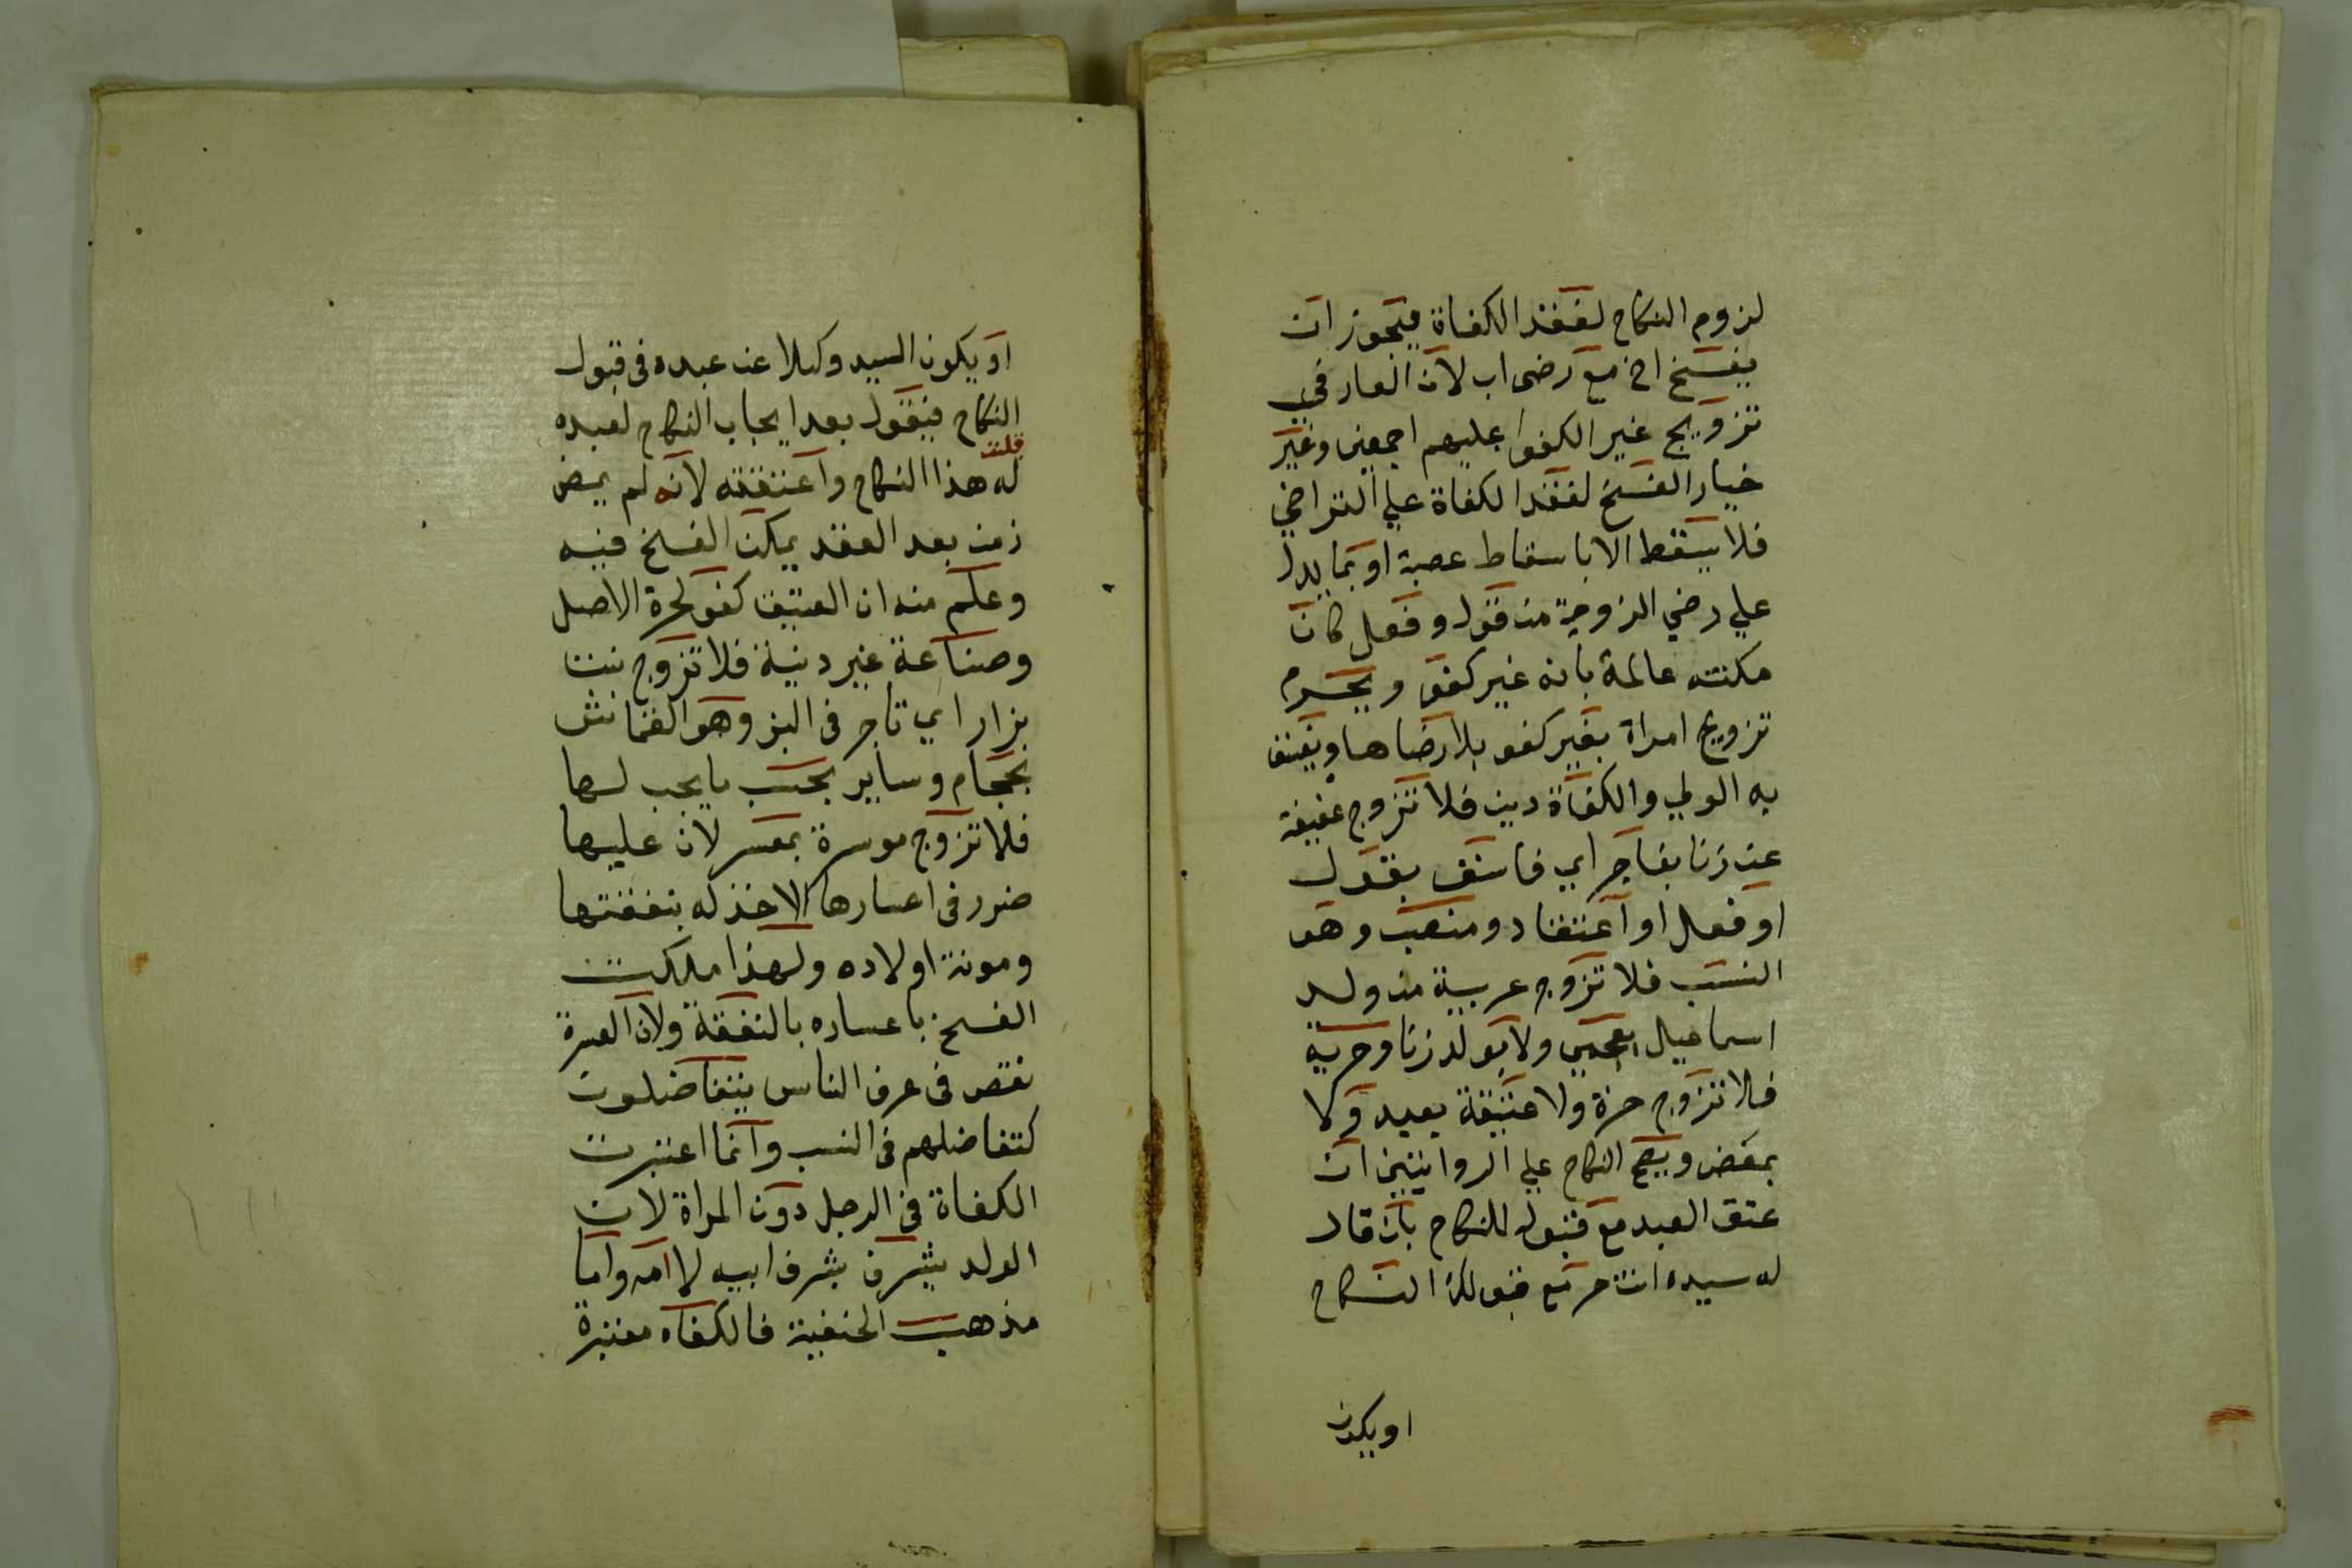 لزوم النكاح لفقد الكفاة فيجوز ان
يفسخ اخ مع رضى اب لان العار في
تزويج غير الكفوا عليهم اجمعين وغير
خيار الفسخ لفقد الكفاة علي التراخي
فلا يسقط الا باسقاط عصبة او بما يدل
علي رضي الزوجة من قول و فعل كان
مكنته عالمة بانه غير كفو ويحرم
تزويج امراة بغير كفو بلا رضاها ويفسق
به الولي والكفاة دين فلا تزوج عفيفة
عن زنا بفاجر اي فاسق بقول
او فعل او اعتقاد ومنصب وهو
النسب فلا تزوج عربية من ولد
اسماعيل بعجمي ولا بولد زنا وحرية
فلا تزوج حرة ولا عتيقة بعبد ولا
بمبعض ويصح النكاح علي الروايتين ان
عتق العبد مع قبوله للنكاح بان قال
له سيده انت حر مع قبولك النكاح
او يكون
او يكون السيد وكيلا عن عبده في قبول
النكاح فيقول بعد ايجاب النكاح لعبده
قبلت
له هذا النكاح واعتقته لانه لم يمض
زمن بعد العقد يمكن الفسخ فيه
وعلم منه ان العتيق كفو لحرة الاصل
وصناعة غير دنية فلا تزوج بنت
بزار اي تاجر في البز وهو القماش
بحجام وساير بحسب ما يجب لها
فلا تزوج موسرة بمعسر لان عليها
ضرر في اعسارها لاخذله بنفقتها
ومونة اولاده ولهذا ملكت
الفسخ باعساره بالنفقة ولان العسرة
نقص في عرف الناس يتفاضلون
كتفاضلهم في النسب وانما اعتبرت
الكفاة في الرجل دون المراة لان
الولد يشرف بشرف ابيه لا امه واما
مذهب الحنفية فالكفاه معتبرة